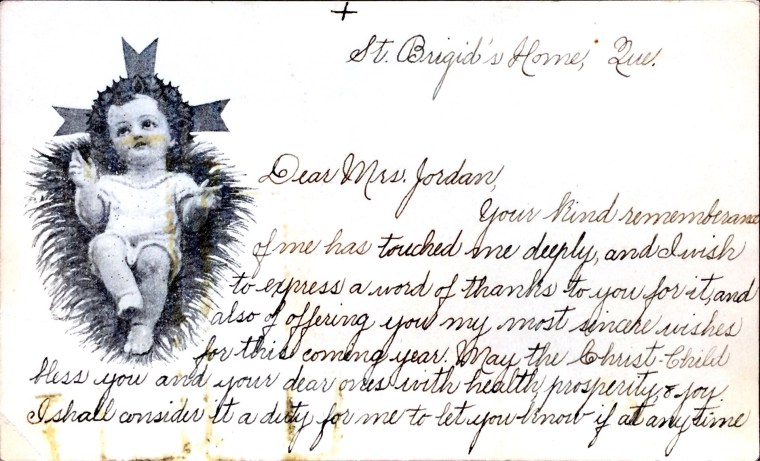 +
St. Brigid's Home, Que.
Dear Mrs. Jordan,
Your kind rememberance
of me has touched me deeply, and I wish
to express a word of thanks to you for it, and
also of offering you my most sincere wishes
for this coming year. May the Christ-Child
bless you and your dear ones with health, prosperity, & joy.
I shall consider it a duty for me to let you know if at any time